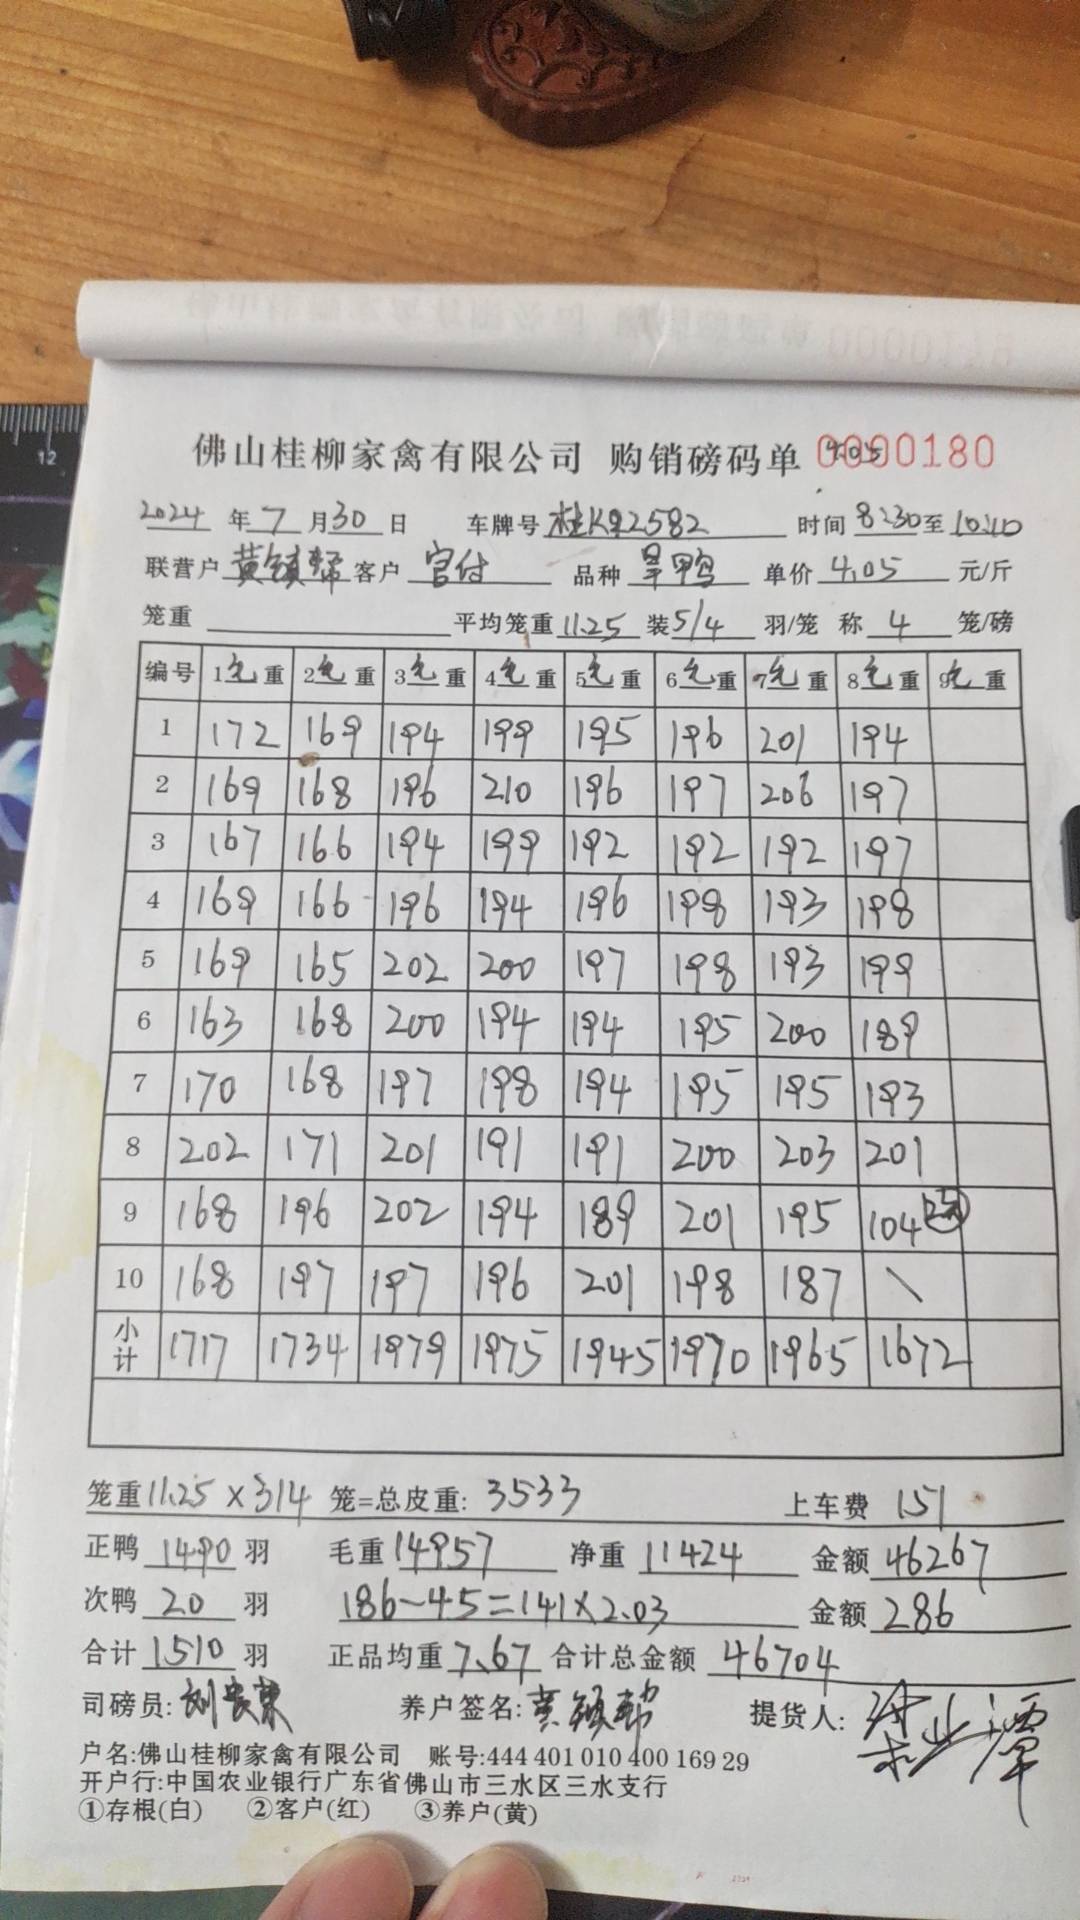 佛山桂柳家禽有限公司 购销磅码单 0000180
4.05
2024 年 7 月 30 日 车牌号 桂K92582 时间 8:30 至 10:10
联营户 黄镇帮 客户 宫付 品种 旱鸭 单价 4.05 元/斤
笼重 平均笼重 11.25 装 5/4 羽/笼 称 4 笼/磅
编号 1毛重 2毛重 3毛重 4毛重 5毛重 6毛重 7毛重 8毛重 9毛重
1 172 169 194 199 195 196 201 194
2 169 168 196 210 196 197 206 197
3 167 166 194 199 192 192 192 197
4 169 166 196 194 196 198 193 198
5 169 165 202 200 197 198 193 199
6 163 168 200 194 194 195 200 189
7 170 168 197 198 194 195 195 193
8 202 171 201 191 191 200 203 201
9 168 196 202 194 189 201 195 104
10 168 197 197 196 201 198 187 \
小计 1717 1734 1979 1975 1945 1970 1965 1672
笼重 11.25 × 314 笼=总皮重: 3533 上车费 151
正鸭 1490 羽 毛重 14957 净重 11424 金额 46267
次鸭 20 羽 186-45=141×2.03 金额 286
合计 1510 羽 正品均重 7.67 合计总金额 46704
司磅员: 养户签名: 黄镇帮 提货人:
户名:佛山桂柳家禽有限公司 账号:444 401 010 400 169 29
开户行:中国农业银行广东省佛山市三水区三水支行
①存根(白) ②客户(红) ③养户(黄)
12